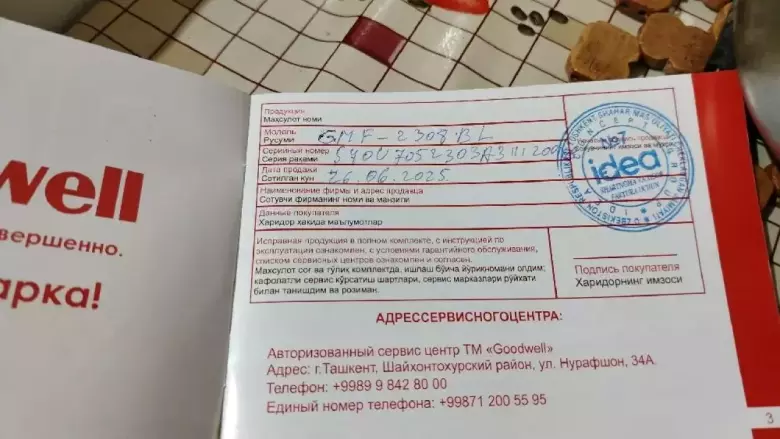 well
вершенно.
арка!
Продукция
Маҳсулот номи
Модель
Русуми
GMF-2308 BL
Серийный номер
Серия рақами
Дата продажи
Сотилган кун
26.06.2025
Наименование фирмы и адрес продавца
Сотувчи фирманинг номи ва манзили
Данные покупателя
Харидор хақида маълумотлар
idea
Исправная продукция в полном комплекте, с инструкцией по
эксплуатации ознакомлен, с условиями гарантийного обслуживания,
списком сервисных центров ознакомлен и согласен.
Маҳсулот соғ ва тўлиқ комплектда, ишлаш бўйича йўриқномани олдим;
кафолатли сервис кўрсатиш шартлари, сервис марказлари рўйхати
билан танишдим ва розиман.
Подпись покупателя
Харидорнинг имзоси
АДРЕССЕРВИСНОГОЦЕНТРА:
Авторизованный сервис центр ТМ «Goodwell»
Адрес: г.Ташкент, Шайхонтохурский район, ул. Нурафшон, 34А.
Телефон: +9989 9 842 80 00
Единый номер телефона: +99871 200 55 95
3